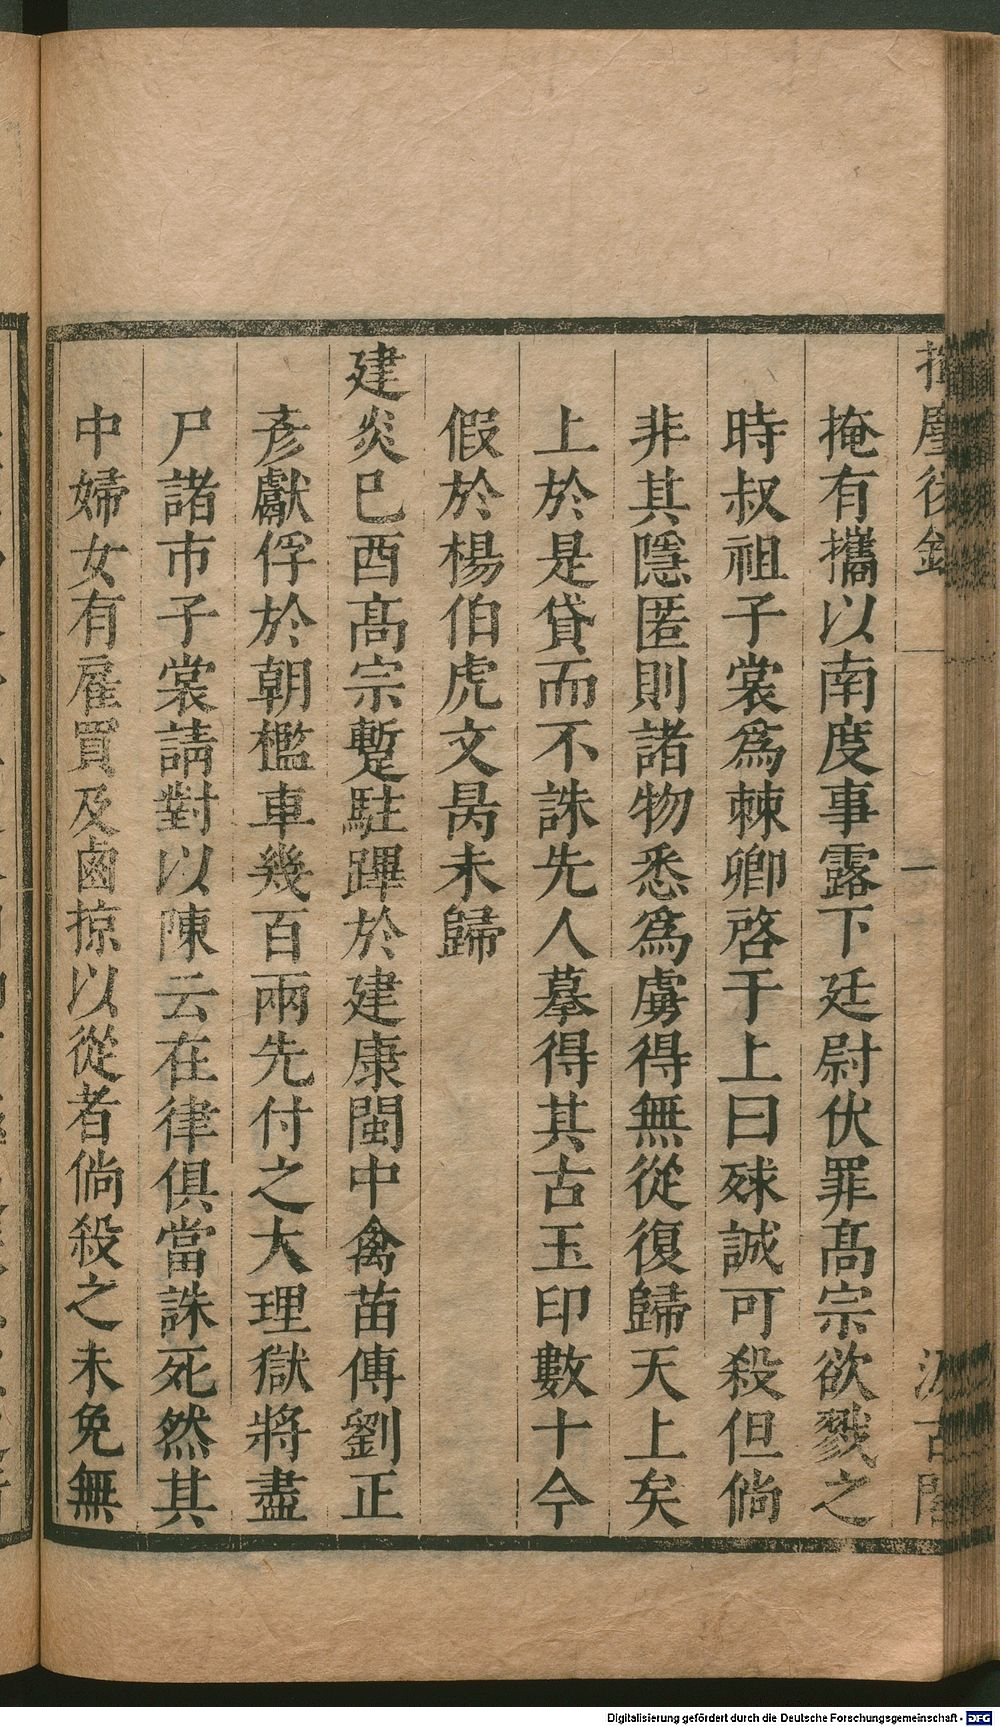 揮麈後錄
一
汲古閣
掩有攜以南度事露下廷尉伏罪髙宗欲戮之
時叔祖子裳爲棘卿啓于上曰球誠可殺但倘
非其隱匿則諸物悉爲虜得無從復歸天上矣
上於是貸而不誅先人摹得其古玉印數十今
假於楊伯虎文昺未歸
建炎已酉髙宗蹔駐蹕於建康閩中禽苗傳劉正
彥獻俘於朝檻車幾百兩先付之大理獄將盡
尸諸市子裳請對以陳云在律俱當誅死然其
中婦女有雇買及鹵掠以從者倘殺之未免無
Digitalisierung gefördert durch die Deutsche Forschungsgemeinschaft - DFG